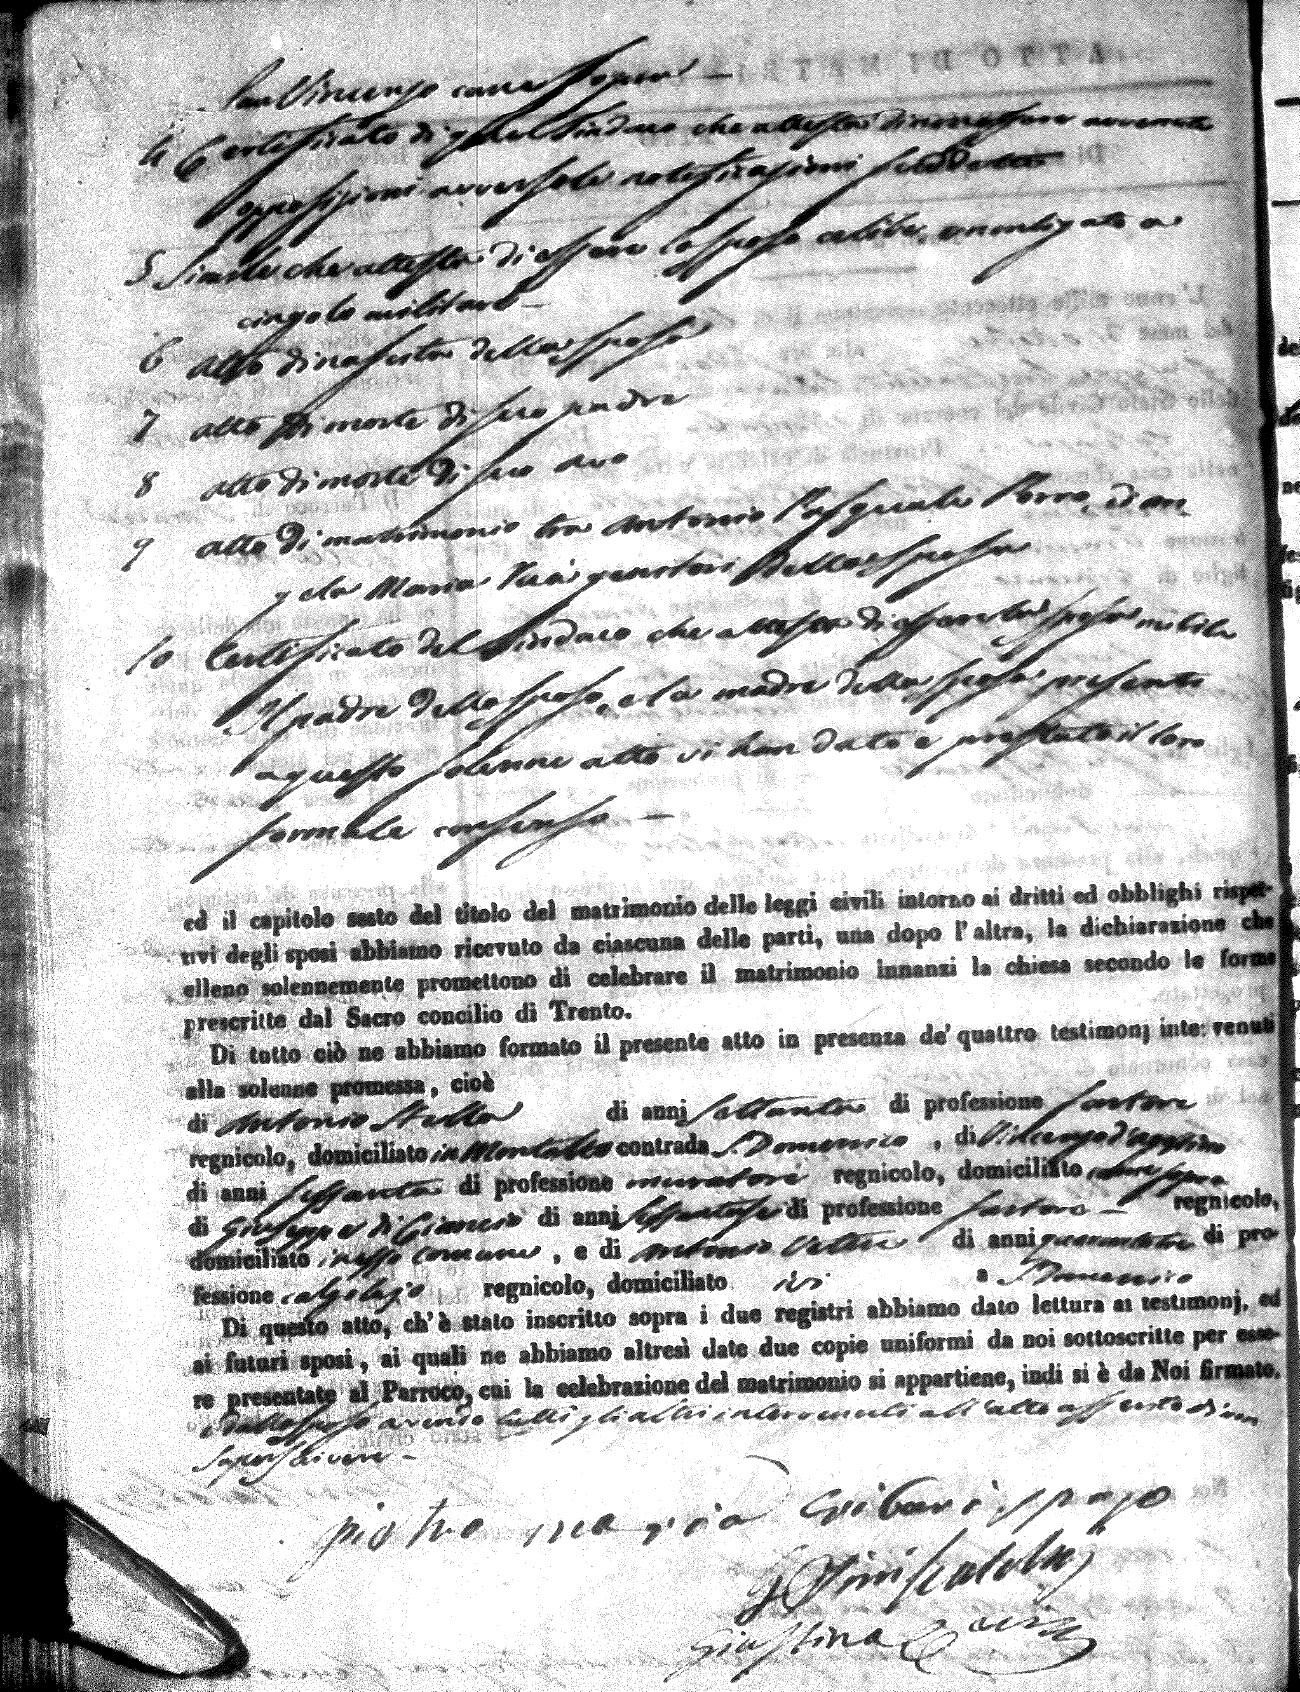 San Vincenzo come sopra —
4 Certificato di q. del Sindaco che attesta di non essere avvenute
opposizioni avverso le notificazioni suddette
5 Simile che attesta di essere lo sposo celibe, e non ligato a
cingolo militare —
6 atto di nascita della sposa
7 atto di morte di suo padre
8 atto di morte di suo avo
9 atto di matrimonio tra Antonio Pasquale Porro, ed an
gela Maria genitori della sposa
10 Certificato del Sindaco che attesta di essere la sposa nubile
Il padre dello sposo, e la madre della sposa presenti
a questo solenne atto vi han dato e prestato il loro
formale consenso —
ed il capitolo sesto del titolo del matrimonio delle leggi civili intorno ai dritti ed obblighi rispet-
tivi degli sposi abbiamo ricevuto da ciascuna delle parti, una dopo l'altra, la dichiarazione che
elleno solennemente promettono di celebrare il matrimonio innanzi la chiesa secondo le forme
prescritte dal Sacro concilio di Trento.
Di tutto ciò ne abbiamo formato il presente atto in presenza de' quattro testimonj intervenuti
alla solenne promessa, cioè
di Antonio Stella di anni settanta di professione sartore
regnicolo, domiciliato in contrada S. Domenico, di Vincenzo d'
di anni sessanta di professione muratore regnicolo, domiciliato come sopra
di Giuseppe di di anni di professione sartore — regnicolo,
domiciliato in esso comune, e di Antonio di anni di pro-
fessione calzolajo regnicolo, domiciliato ivi a S. Domenico
Di questo atto, ch'è stato inscritto sopra i due registri abbiamo dato lettura ai testimonj, ed
ai futuri sposi, ai quali ne abbiamo altresì date due copie uniformi da noi sottoscritte per esse-
re presentate al Parroco, cui la celebrazione del matrimonio si appartiene, indi si è da Noi firmato,
e dallo sposo avendo tutti gli altri intervenuti all'atto asserito di non
saper scrivere —
pietro sposo
Giustina